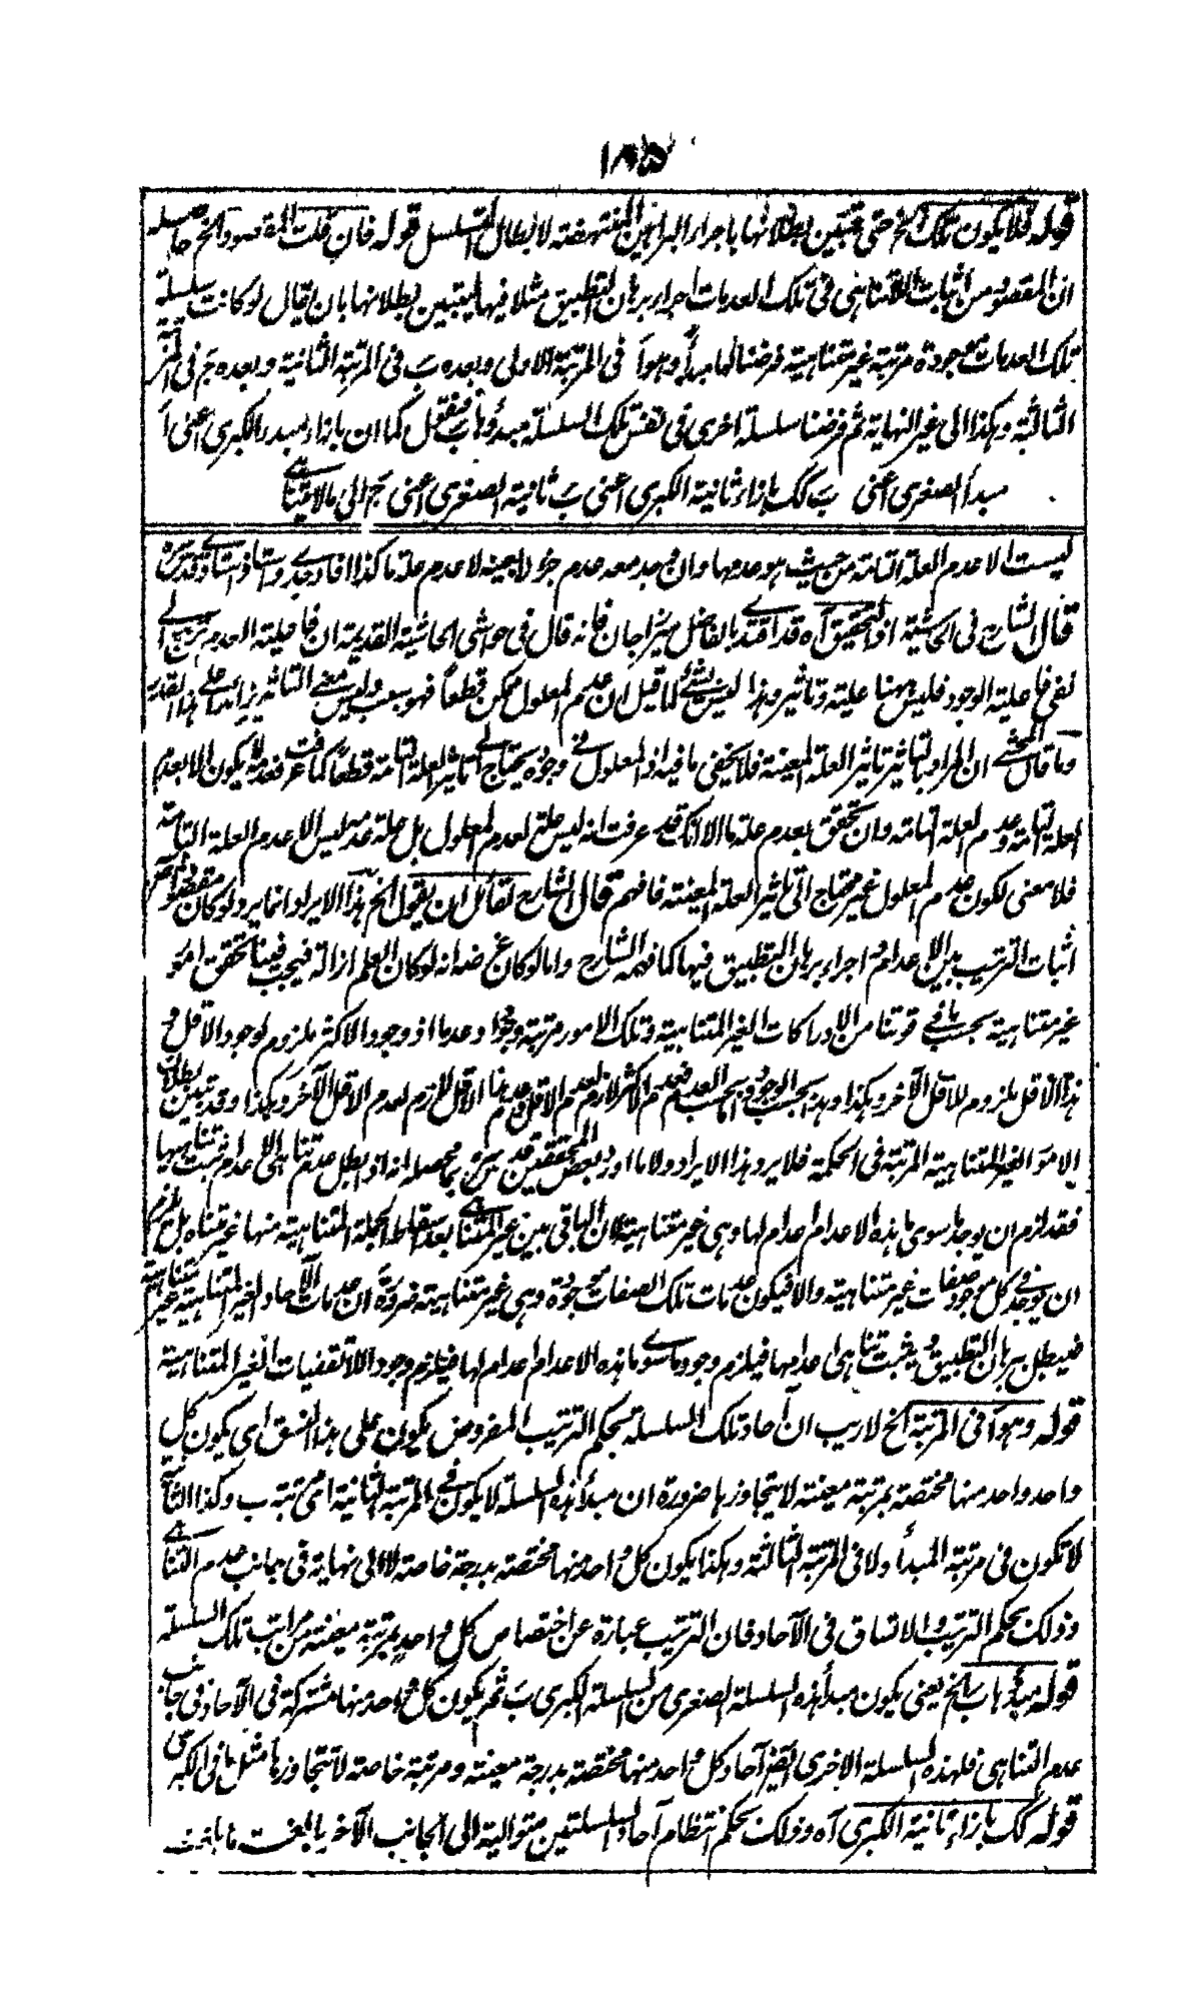 ١٨٥
قوله فلا يكون تلك الخ حتى يتبين بطلانها باجراء البراهين المنتهضة لابطال التسلسل قوله فان قلت المقصود الخ حاصله
ان المقصود من اثبات اللاتناهى فى تلك العدمات اجراء برهان التطبيق مثلا فيها ليتبين بطلانها بان يقال لو كانت سلسلة
تلك العدمات موجودة مرتبة غير متناهية فرضنا لها مبدأ وهو اَ فى المرتبة الاولى وبعده بَ فى المرتبة الثانية وبعده جَ فى المرتبة
الثالثة وهكذا الى غير النهاية ثم فرضنا سلسلة اخرى فى نفس تلك السلسلة مبدؤها بَ فنقول كما ان بازاء مبدء الكبرى اعنى اَ
مبدأ الصغرى اعنى بَ كك بازاء ثانية الكبرى اعنى بَ ثانية الصغرى اعنى جَ الى مالايتناهى
ليست الا عدم العلة التامة من حيث هو عدمها وان وجد معه عدم جزء لا بعينه لا عدم علة ما كذا افاد جدى واستاذ استاذى قدس سره
قال الشارح فى الحاشية اذ التحقيق آه قد اقتدى بالفاضل ميرزاجان فانه قال فى حواشى الحاشية القديمة ان فاعلية العدم ترجع الى
نفى فاعلية الوجود فليس هنا علية وتاثير وهذا ليس بشئ لما قيل ان عدم المعلول ممكن قطعاً فهو بسبب وليس معنى التاثير زائدا على هذا القدر
وما قال المحشى ان المراد بالتاثير تاثير العلة المعينة فلا يخفى ما فيه اذ المعلول فى وجوده يحتاج الى تاثير العلة التامة قطعاً كما عرفت فعدمه لا يكون الا بعدم
العلة التامة وعدم العلة التامة وان تحقق بعدم علة ما الا انك قد عرفت انه ليس علة لعدم المعلول بل علة عدمه ليس الا عدم العلة التامة
فلا معنى لكون عدم المعلول غير محتاج الى تاثير العلة المعينة فافهم قال الشارح لقائل ان يقول الخ هذا الايراد انما يرد لو كان مقصود
اثبات الترتيب بين الاعدام و اجراء برهان التطبيق فيها كما فهمه الشارح واما لو كان غرضه انه لو كان العلم ازالة فيجب فينا تحقق امور
غير متناهية بحسب ما فى قوتنا من الادراكات الغير المتناهية وتلك الامور مرتبة وجودا وعدما اذ وجود الاكثر ملزوم لوجود الاقل و
هذا الاقل ملزوم للاقل الآخر وهكذا وهذا بحسب الوجود واما بحسب العدم فعدم الاكثر لازم لعدم الاقل وعدم هذا الاقل لازم لعدم الاقل الآخر وهكذا وقد تبين بطلان
الامور الغير المتناهية المرتبة فى الحكمة فلا يرد هذا الايراد ولا ما اورد بعض المحققين قدس سره بما محصله انه اذ بطل عدم تناهى الاعدام وثبت تناهيها
فقد لزم ان يوجد ما سوى هذه الاعدام اعدام لها وهى غير متناهية لان الباقى بين غير المتناهى بعد اسقاط الجملة المتناهية منها غير متناه بل يلزم
ان يوجد فى كل موجود صفات غير متناهية والا فيكون عدمات تلك الصفات موجودة وهى غير متناهية ضرورة ان عدمات الآحاد الغير المتناهية غير متناهية
فيبطل ببرهان التطبيق ويثبت تناهى اعدامها فيلزم وجود ما سوى هذه الاعدام اعدام لها فيلزم وجود الاتصفيات الغير المتناهية
قوله وهو اَ فى المرتبة الخ لا ريب ان آحاد تلك السلسلة بحكم الترتيب المفروض يكون على هذا النسق اى يكون كل
واحد واحد منها مختصة بمرتبة معينة لا يتجاوزها ضرورة ان مبدأ هذه السلسلة لا يكون فى المرتبة الثانية اى مرتبة ب وكذا الثانية
لا تكون فى مرتبة المبدأ ولا فى المرتبة الثالثة وهكذا يكون كل واحد منها مختصة بدرجة خاصة لا الى نهاية فى جانب عدم التناهى
وذلك بحكم الترتيب والاتساق فى الآحاد فان الترتيب عبارة عن اختصاص كل واحد بمرتبة معينة من مراتب تلك السلسلة
قوله مبدؤها ب الخ يعنى يكون مبدأ هذه السلسلة الصغرى من السلسلة الكبرى بَ ثم يكون كل واحد منها مشتركة فى الآحاد فى جانب
عدم التناهى فلهذه السلسلة الاخرى ايضا آحاد كل واحد منها مختصة بدرجة معينة ومرتبة خاصة لا تتجاوزها مثل ما فى الكبرى
قوله كك بازاء ثانية الكبرى آه وذلك بحكم انتظام آحاد السلسلتين متوالية الى الجانب الآخر بالغت ما بلغت